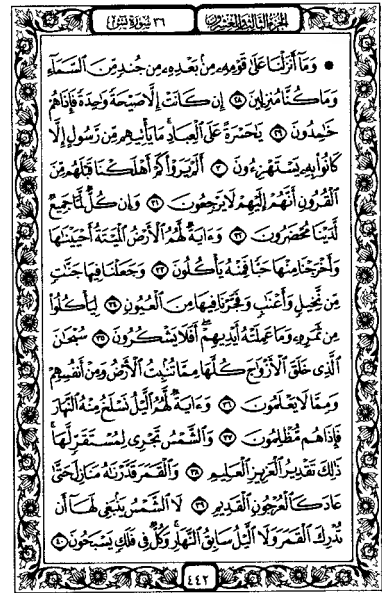 الجزء الثالث والعشرون ٣٦ سورة يس
وَمَآ أَنزَلْنَا عَلَىٰ قَوْمِهِۦ مِنۢ بَعْدِهِۦ مِن جُندٍ مِّنَ ٱلسَّمَآءِ
وَمَا كُنَّا مُنزِلِينَ ٢٨ إِن كَانَتْ إِلَّا صَيْحَةً وَٰحِدَةً فَإِذَا هُمْ
خَٰمِدُونَ ٢٩ يَٰحَسْرَةً عَلَى ٱلْعِبَادِ مَا يَأْتِيهِم مِّن رَّسُولٍ إِلَّا
كَانُوا۟ بِهِۦ يَسْتَهْزِءُونَ ٣٠ أَلَمْ يَرَوْا۟ كَمْ أَهْلَكْنَا قَبْلَهُم مِّنَ
ٱلْقُرُونِ أَنَّهُمْ إِلَيْهِمْ لَا يَرْجِعُونَ ٣١ وَإِن كُلٌّ لَّمَّا جَمِيعٌ
لَّدَيْنَا مُحْضَرُونَ ٣٢ وَءَايَةٌ لَّهُمُ ٱلْأَرْضُ ٱلْمَيْتَةُ أَحْيَيْنَٰهَا
وَأَخْرَجْنَا مِنْهَا حَبًّا فَمِنْهُ يَأْكُلُونَ ٣٣ وَجَعَلْنَا فِيهَا جَنَّٰتٍ
مِّن نَّخِيلٍ وَأَعْنَٰبٍ وَفَجَّرْنَا فِيهَا مِنَ ٱلْعُيُونِ ٣٤ لِيَأْكُلُوا۟
مِن ثَمَرِهِۦ وَمَا عَمِلَتْهُ أَيْدِيهِمْ أَفَلَا يَشْكُرُونَ ٣٥ سُبْحَٰنَ
ٱلَّذِى خَلَقَ ٱلْأَزْوَٰجَ كُلَّهَا مِمَّا تُنۢبِتُ ٱلْأَرْضُ وَمِنْ أَنفُسِهِمْ
وَمِمَّا لَا يَعْلَمُونَ ٣٦ وَءَايَةٌ لَّهُمُ ٱلَّيْلُ نَسْلَخُ مِنْهُ ٱلنَّهَارَ
فَإِذَا هُم مُّظْلِمُونَ ٣٧ وَٱلشَّمْسُ تَجْرِى لِمُسْتَقَرٍّ لَّهَا
ذَٰلِكَ تَقْدِيرُ ٱلْعَزِيزِ ٱلْعَلِيمِ ٣٨ وَٱلْقَمَرَ قَدَّرْنَٰهُ مَنَازِلَ حَتَّىٰ
عَادَ كَٱلْعُرْجُونِ ٱلْقَدِيمِ ٣٩ لَا ٱلشَّمْسُ يَنۢبَغِى لَهَآ أَن
تُدْرِكَ ٱلْقَمَرَ وَلَا ٱلَّيْلُ سَابِقُ ٱلنَّهَارِ وَكُلٌّ فِى فَلَكٍ يَسْبَحُونَ ٤٠
٤٤٢